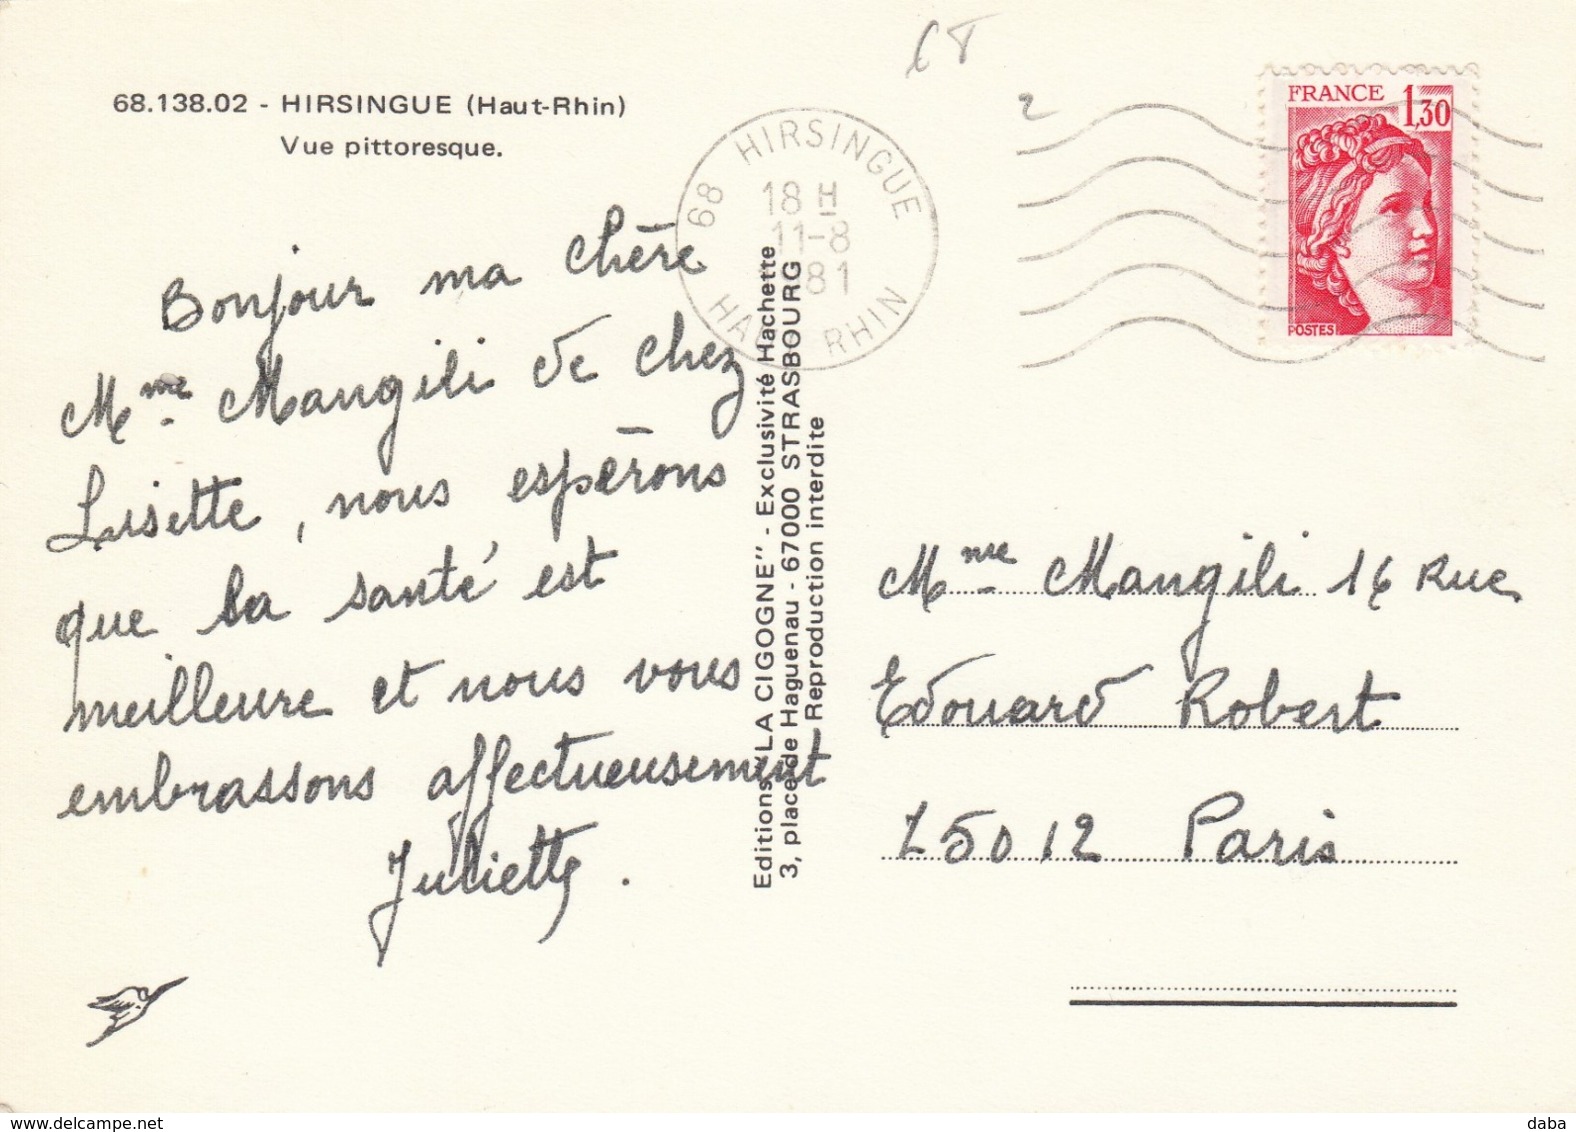 68
2
68.138.02 - HIRSINGUE (Haut-Rhin)
Vue pittoresque.
68 HIRSINGUE
18 H
11-8
81
HAUT RHIN
FRANCE 1,30
POSTES
Bonjour ma chère
Mme Mangili de chez
Lisette, nous espérons
que la santé est
meilleure et nous vous
embrassons affectueusement
Juliette.
Editions "LA CIGOGNE" - Exclusivité Hachette
3, place de Haguenau - 67000 STRASBOURG
Reproduction interdite
Mme Mangili 16 Rue
Edouard Robert
75012 Paris
www.delcampe.net
daba